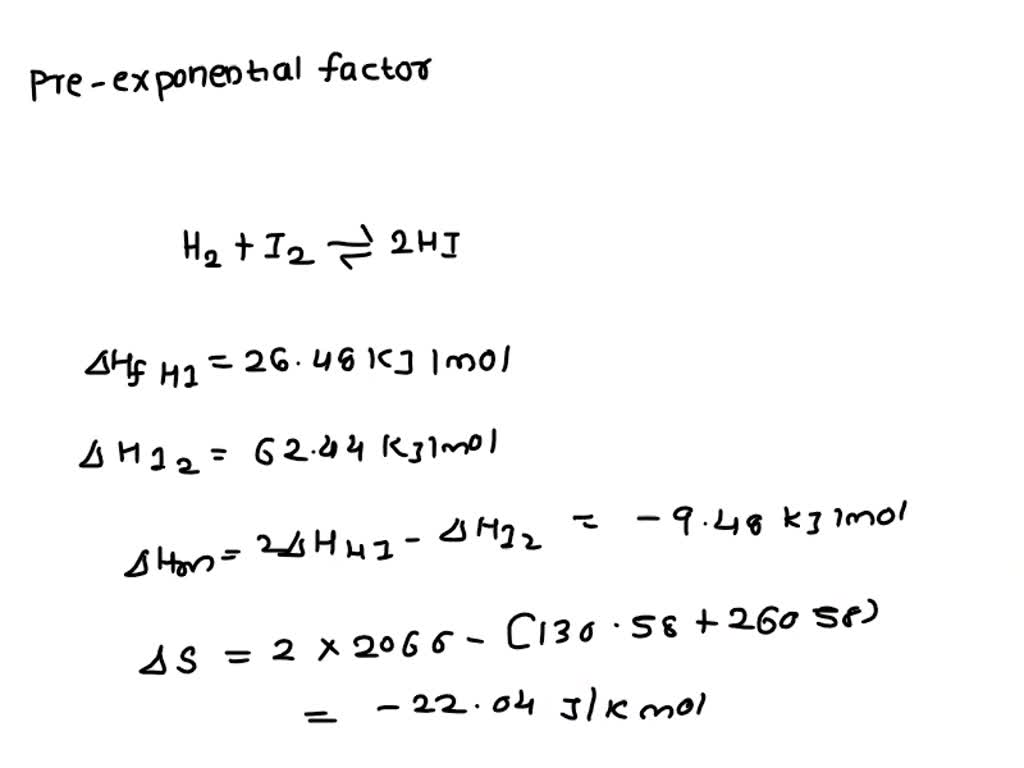 Pre-exponential factor
H₂ + I₂ ⇌ 2HI
ΔHf HI = 26.48 KJ/mol
ΔH I₂ = 62.44 KJ/mol
ΔHrxn = 2ΔH HI - ΔH I₂ = -9.48 KJ/mol
ΔS = 2 × 2066 - [130.58 + 260 58)
= -22.04 J/K mol